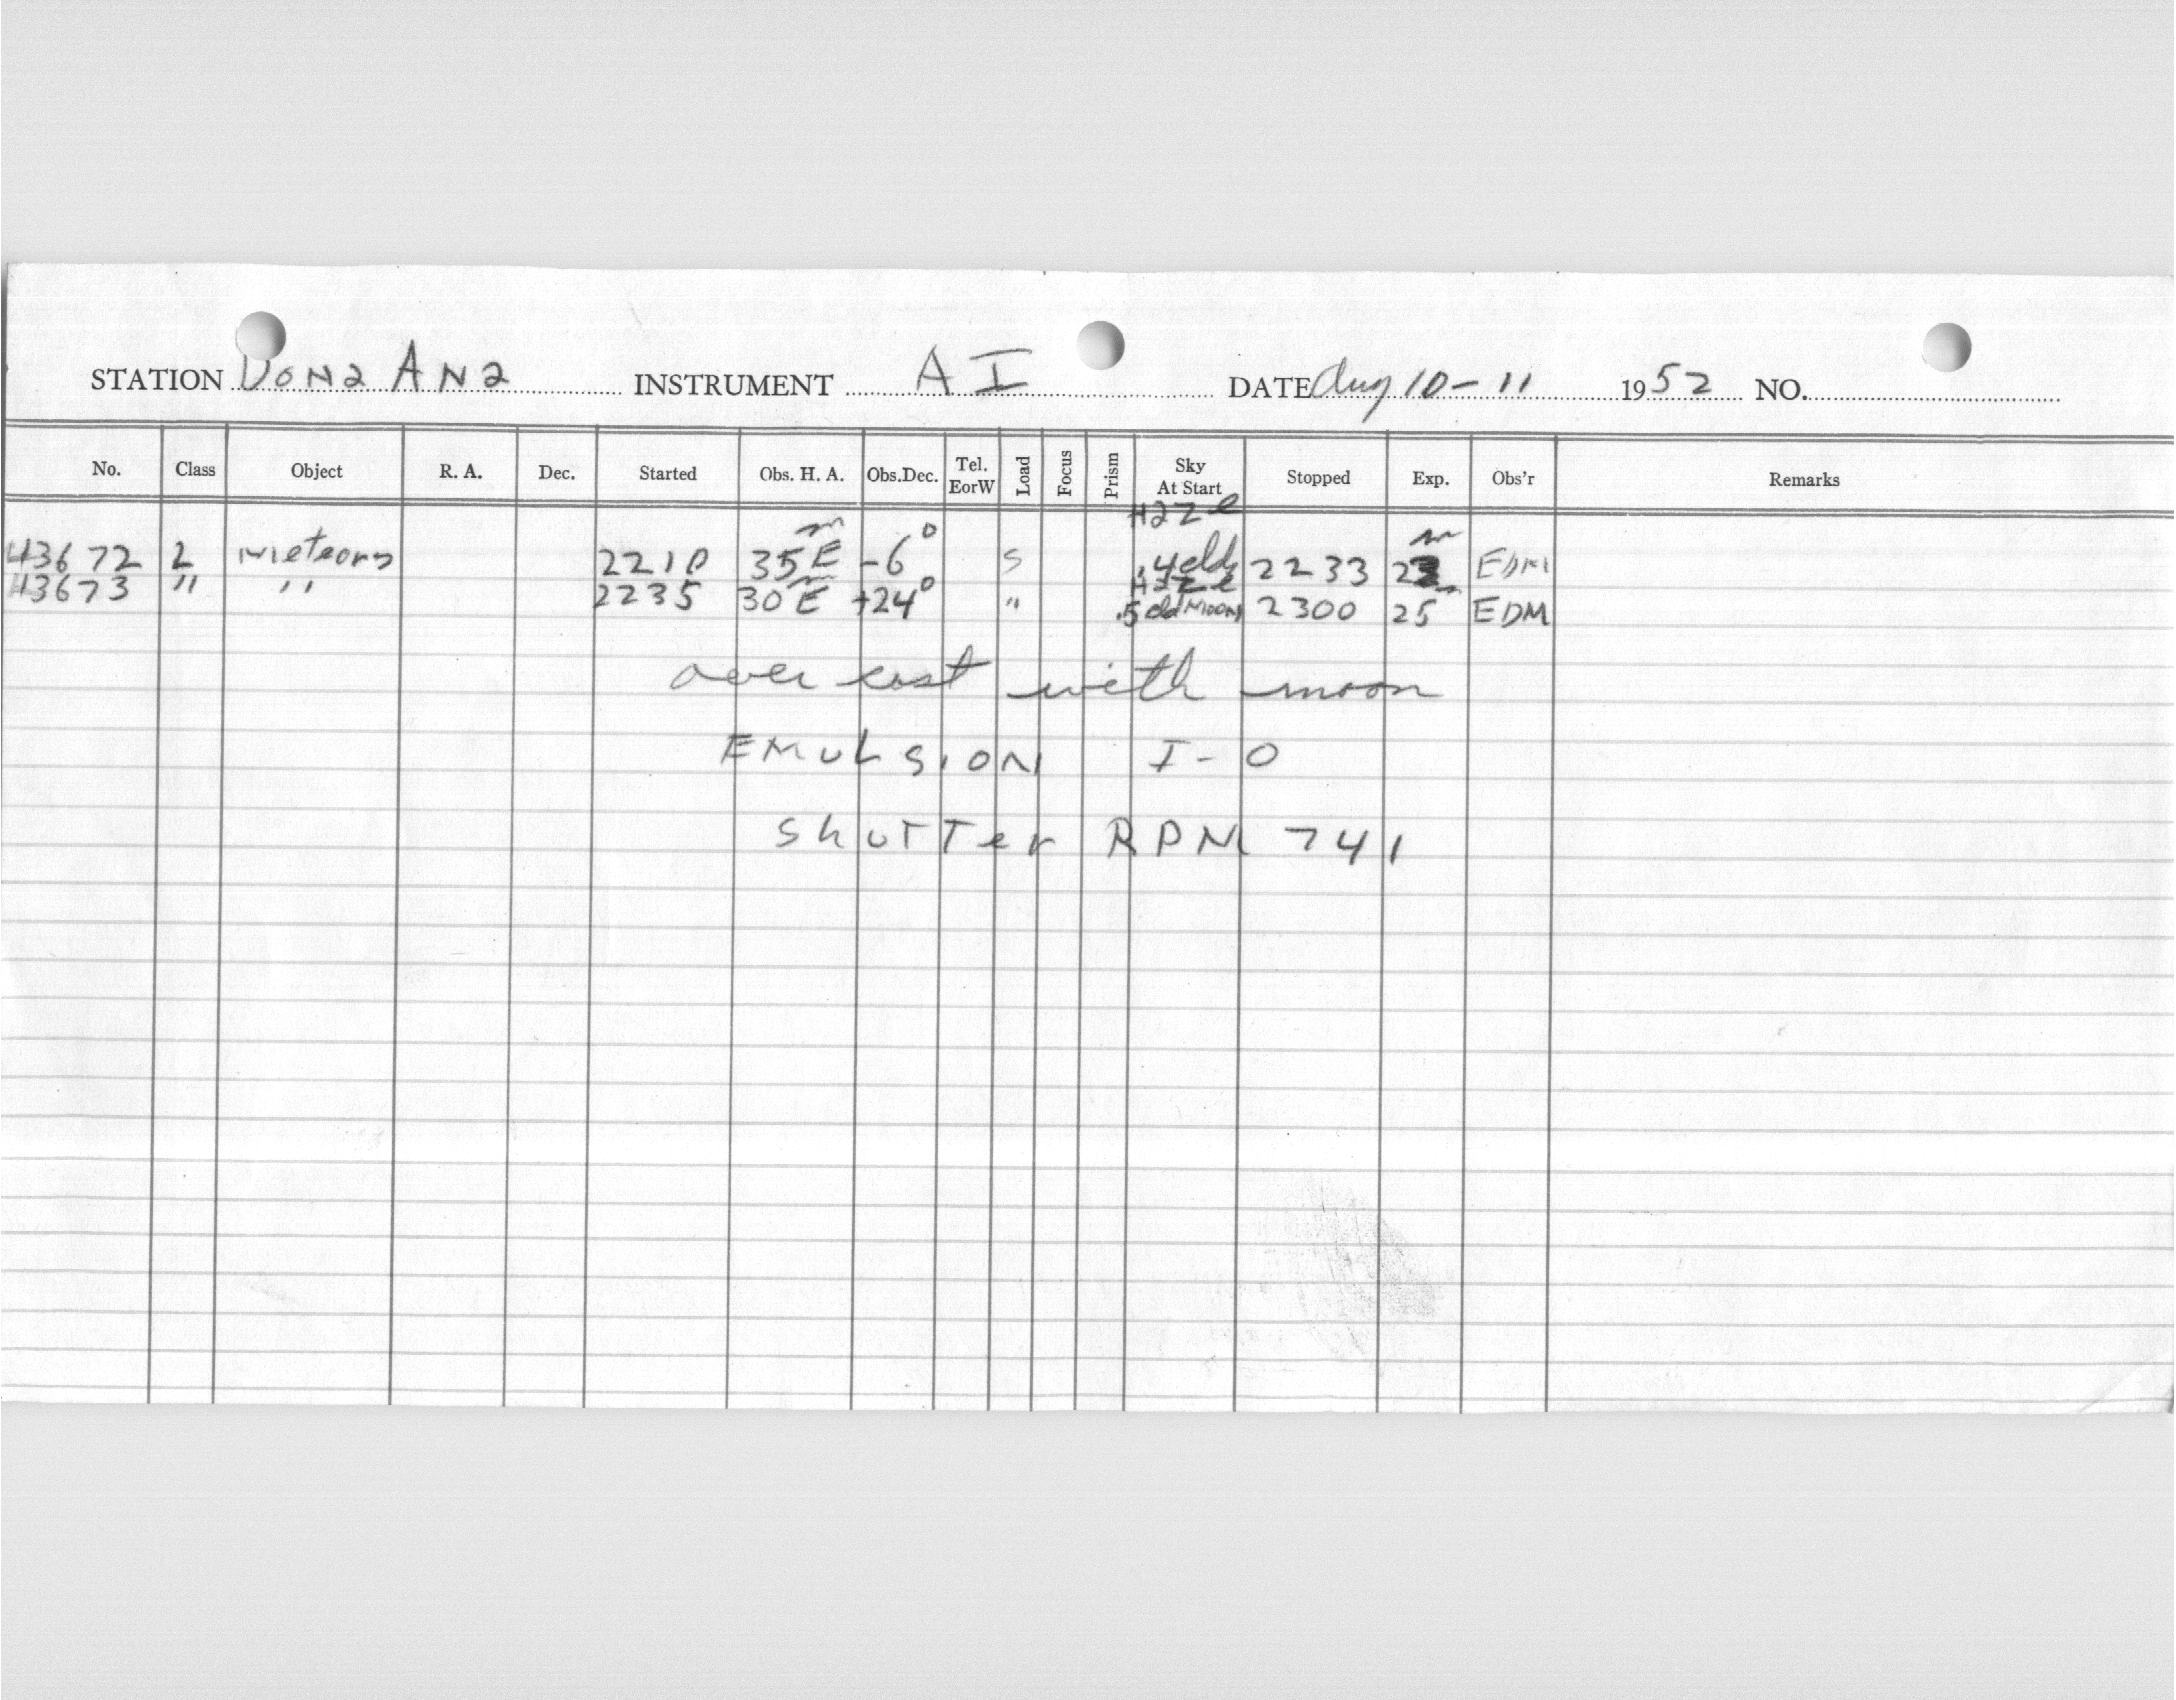 STATION Dona Ana INSTRUMENT AI DATE Aug 10-11 1952 NO.
No. Class Object R. A. Dec. Started Obs. H. A. Obs.Dec. Tel. EorW Load Focus Prism Sky At Start Stopped Exp. Obs'r Remarks
43672 L Meteors 2210 35m E -6° S Haze .4 cld 2233 23m EDM
43673 " " 2235 30m E +24° " Haze .5 cld Moon 2300 25m EDM
over cast with moon
EMULSION I-O
Shutter RPM 741